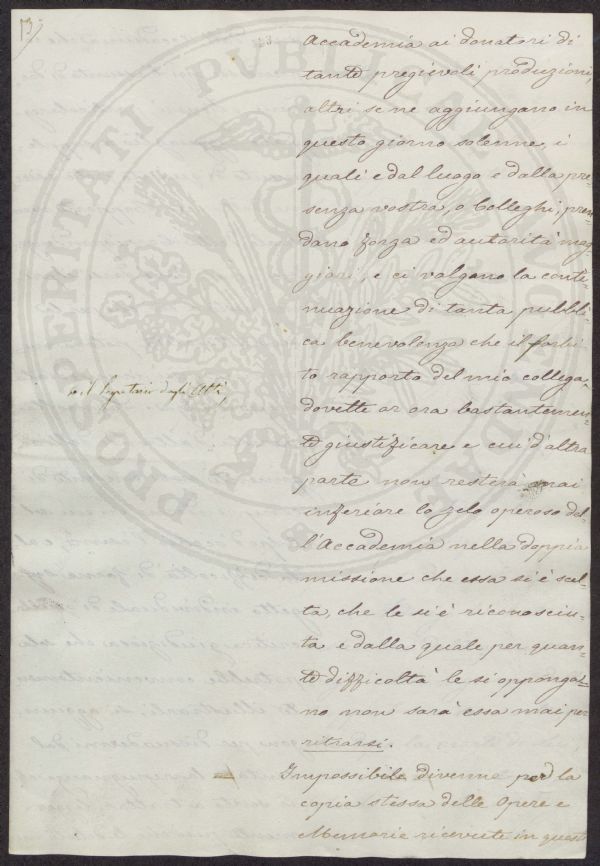 13
Accademia ai donatori di
tante pregievoli produzioni,
altri se ne aggiungano in
questo giorno solenne, i
quali e dal luogo e dalla pre-
senza vostra, o Colleghi, pren-
dano forza ed autorità mag-
giori, e ci valgano la conti-
nuazione di tanta pubbli-
ca benevolenza che il forbi-
to rapporto del mio collega,
il Segretario degli Atti,
dovette or ora bastantemen-
te giustificare e cui d'altra
parte non resterà mai
inferiore lo zelo operoso del-
l'Accademia nella doppia
missione che essa si è scel-
ta, che le si è riconosciu-
ta e dalla quale per quan-
te difficoltà le si opponga-
no non sarà essa mai per
ritrarsi.
Impossibile divenne per la
copia stessa delle Opere e
Memorie ricevute in quest
PROSPERITATI PUBLICAE AUGENDAE